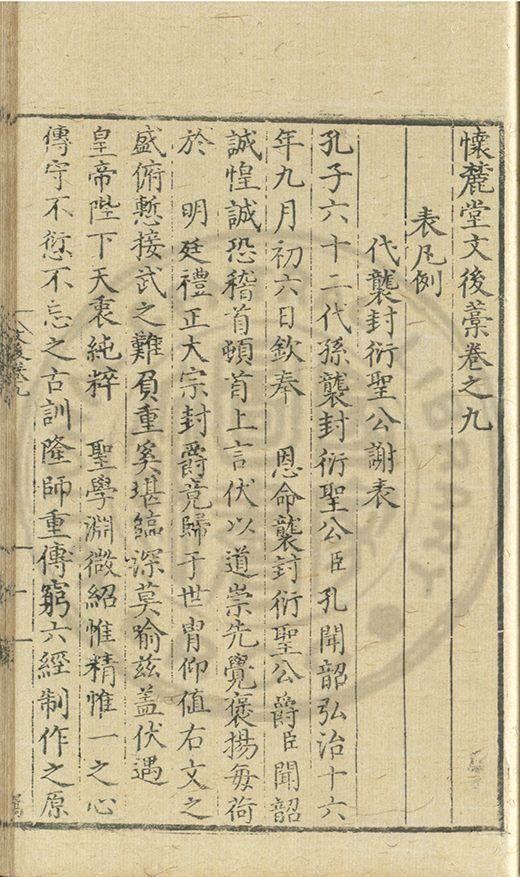 懷麓堂文後藁卷之九
表凡例
代襲封衍聖公謝表
孔子六十二代孫襲封衍聖公臣孔聞韶弘治十六
年九月初六日欽奉 恩命襲封衍聖公爵臣聞韶
誠惶誠恐稽首頓首上言伏以道崇先覺褒揚每荷
於 明廷禮正大宗封爵竟歸于世胄仰值右文之
盛俯慙接武之難負重奚堪臨深莫喻兹盖伏遇
皇帝陛下天衷純粹 聖學淵微紹惟精惟一之心
傳守不愆不忘之古訓隆師重傅窮六經制作之原